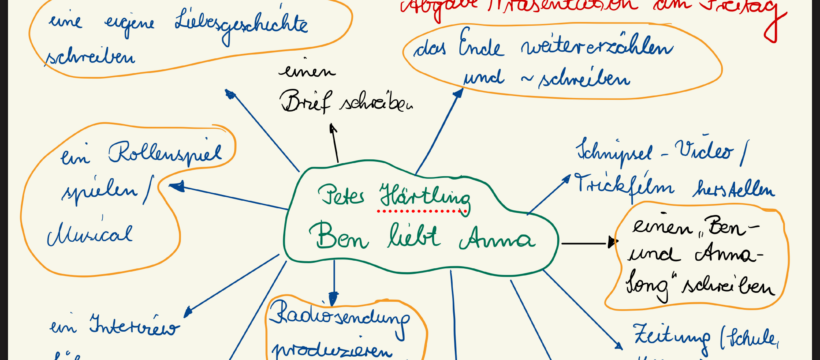 Abgabe Präsentation am Freitag
eine eigene Liebesgeschichte
schreiben
das Ende weitererzählen
und ~ schreiben
einen
Brief schreiben
ein Rollenspiel
spielen /
Musical
Schnipsel - Video /
Trickfilm herstellen
Peter Härtling
Ben liebt Anna
einen „Ben-
und Anna-
Song" schreiben
ein Interview
Radiosendung
produzieren
Zeitung (Schule,